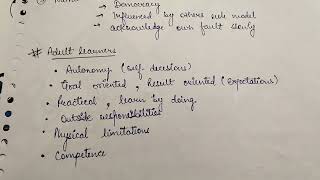 → Democracy
→ Influenced by others role model
→ acknowledge own fault slowly
# Adult learners
• Autonomy (self decisions)
• Goal oriented, Result oriented (Expectations)
• Practical, learn by doing.
• Outside responsibilities
• Physical limitations
• Competence